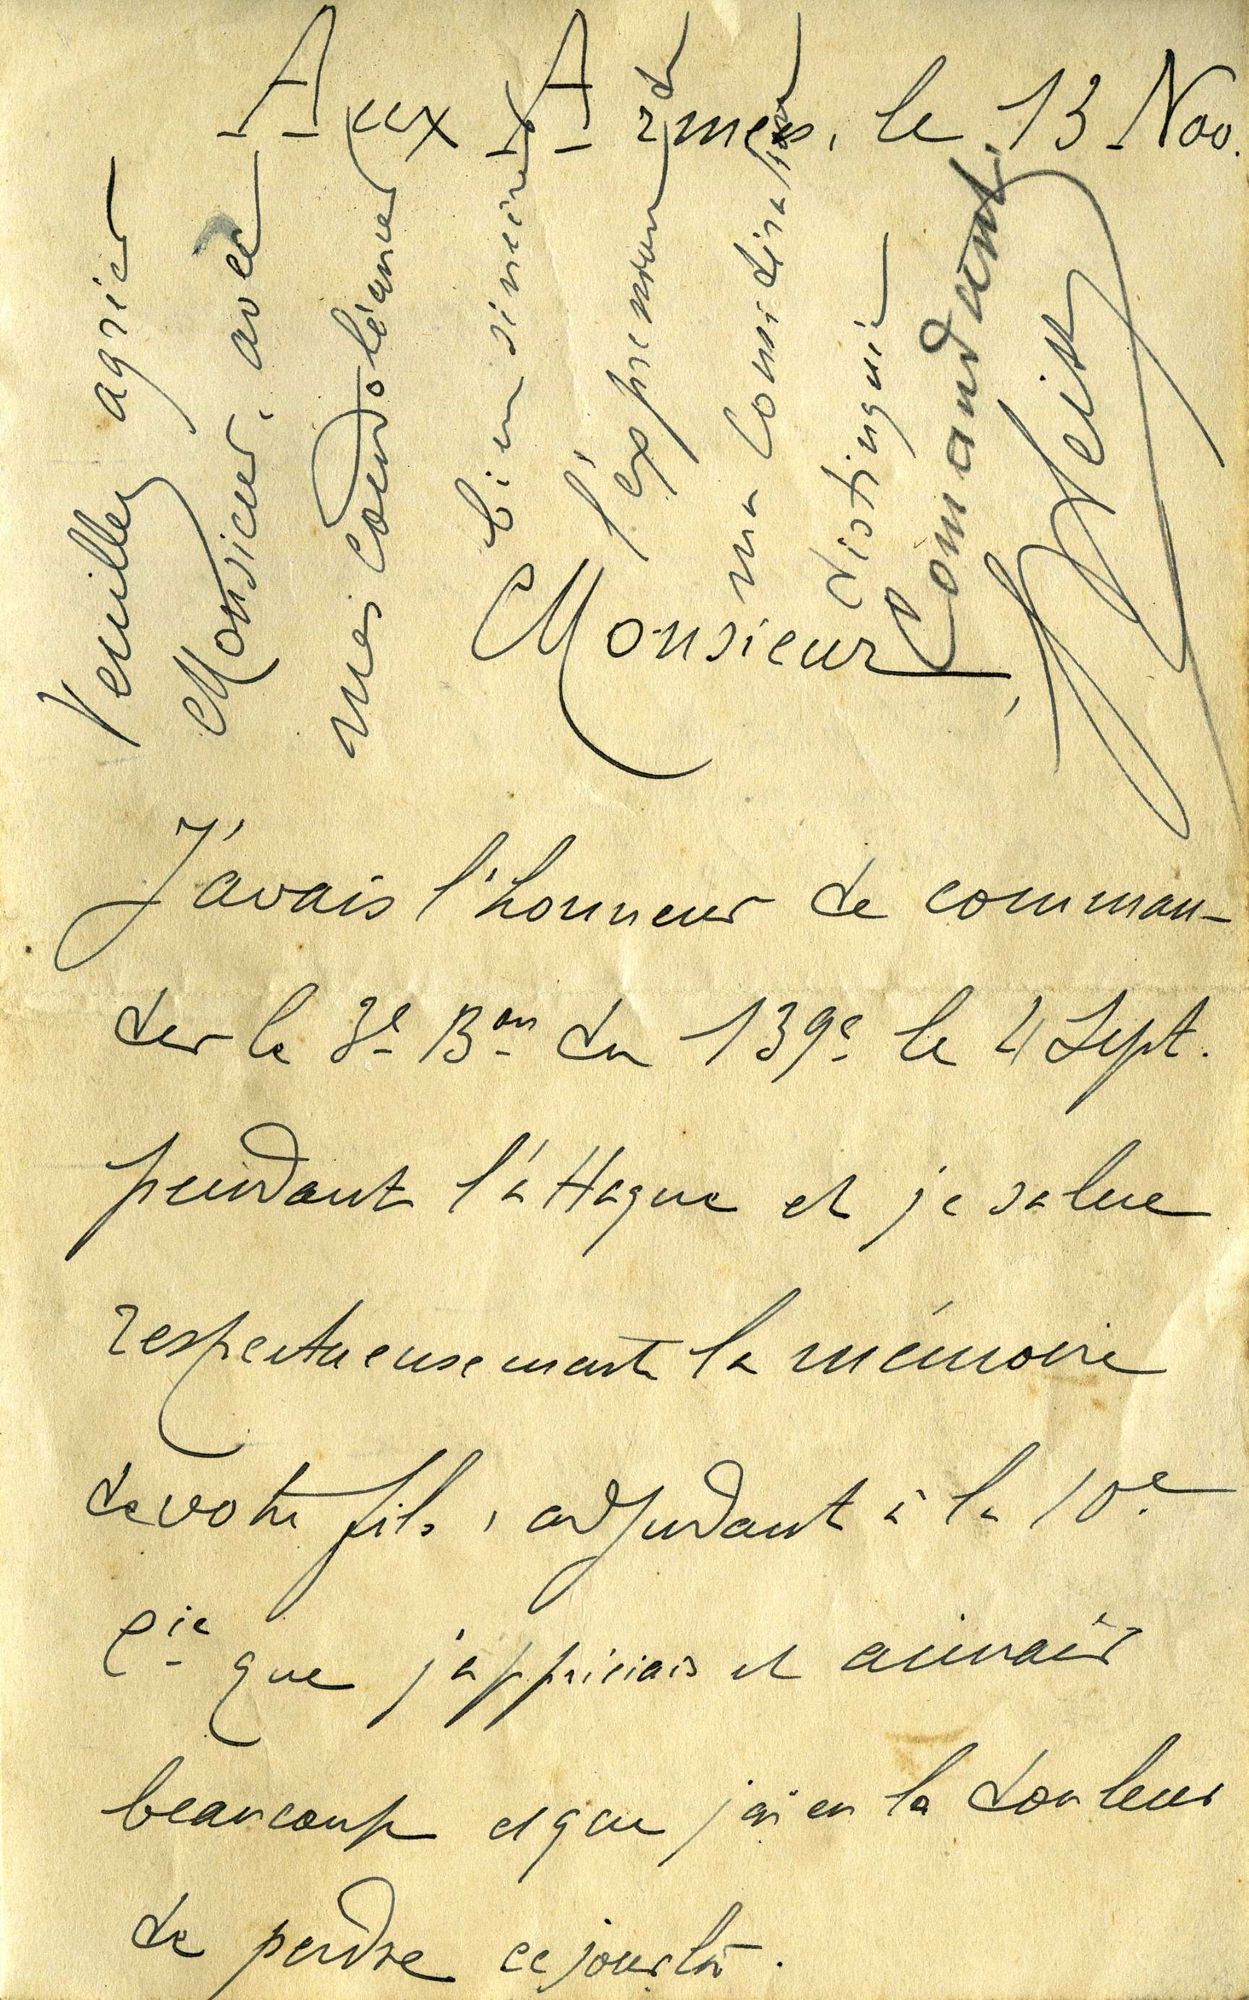 Aux Armées, le 13 Nov.
Monsieur,
J'avais l'honneur de comman-
der le 3e Bon du 139e le 4 Sept.
pendant l'attaque et je salue
respectueusement la mémoire
de votre fils, adjudant à la 10e
Cie que j'appréciais et aimais
beaucoup et que j'ai eu la douleur
de perdre ce jour là.
Veuillez agréer
Monsieur, avec
mes condoléances
bien sincères
l'expression de
ma considération
distinguée
Comandant